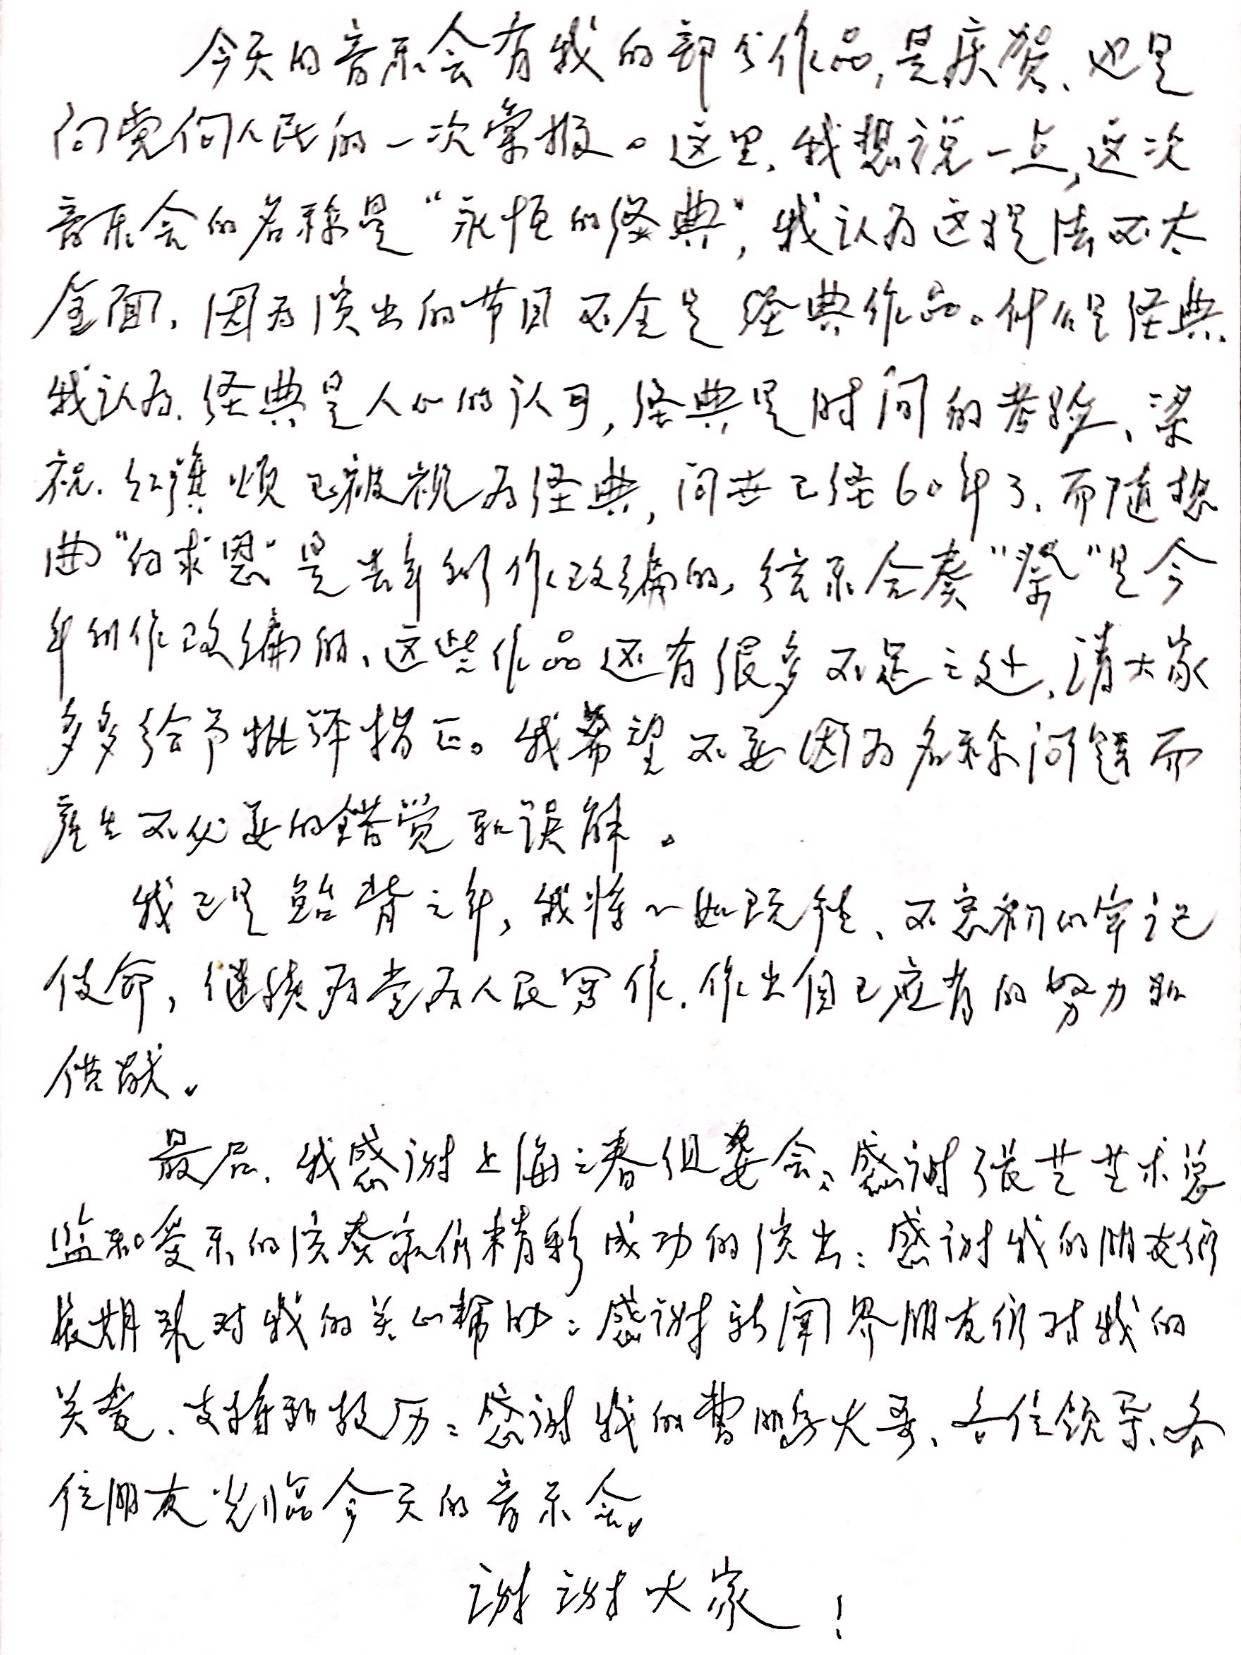 今天的音乐会有我的部分作品,是庆贺、也是
向党向人民的一次汇报。这里,我想说一点,这次
音乐会的名称是“永恒的经典”,我认为这提法不太
全面,因为演出的节目不全是经典作品。什么是经典,
我认为,经典是人心的认可,经典是时间的考验、梁
祝,红旗颂已被视为经典,问世已经60年了,而随想
曲“白求恩”是去年创作改编的,弦乐合奏“祭”是今
年创作改编的,这些作品还有很多不足之处,请大家
多多给予批评指正。我希望不要因为名称问题而
产生不必要的错觉和误解。
我已是鲐背之年,我将一如既往、不忘初心牢记
使命,继续为党为人民写作,作出自己应有的努力和
供献。
最后,我感谢上海之春组委会;感谢张艺艺术总
监和爱乐的演奏家们精彩成功的演出;感谢我的朋友们
长期来对我的关心帮助;感谢新闻界朋友们对我的
关爱、支持和鼓励;感谢我的曹鹏大哥、各位领导、各
位朋友光临今天的音乐会。
谢谢大家!